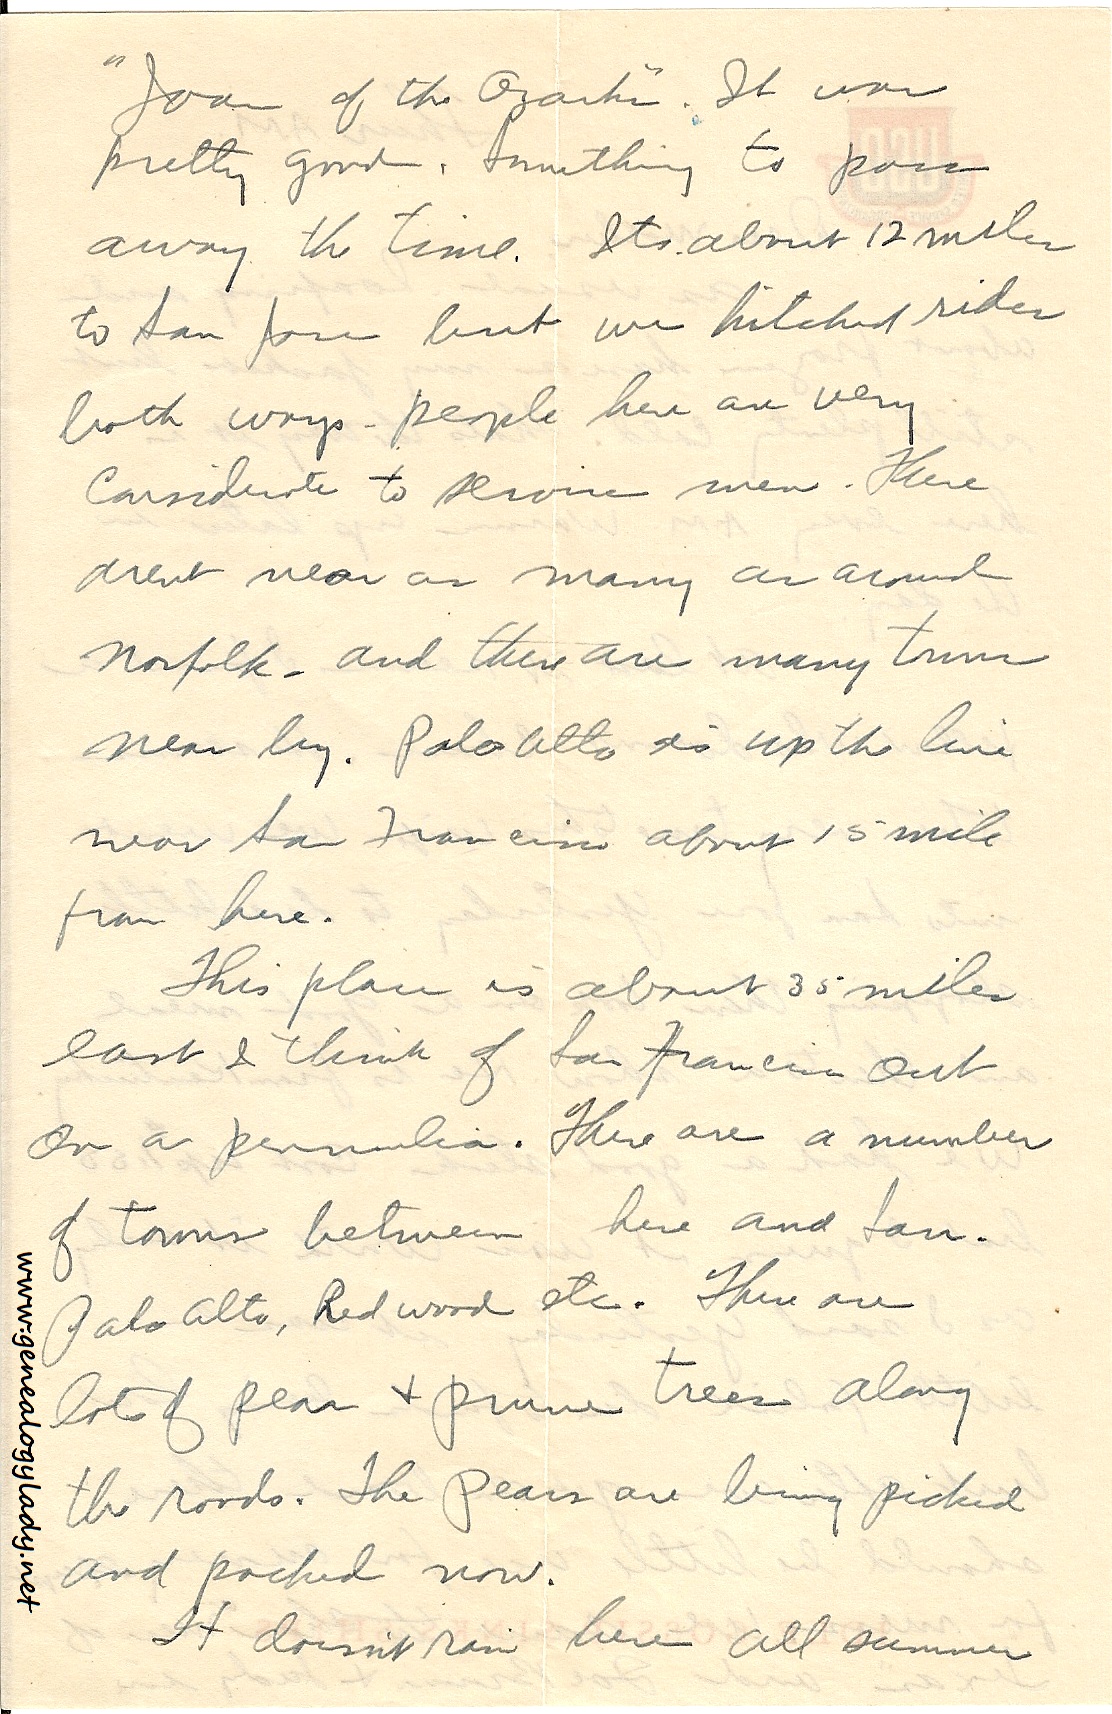 "Joan of the Ozarks". It was
pretty good. Something to pass
away the time. Its about 12 miles
to San Jose but we hitched rides
both ways - people here are very
considerate to service men. There
arent near as many as around
Norfolk - and there are many towns
near by. Palo Alto is up the line
near San Francisco about 15 mile
from here.
This place is about 35 miles
east I think of San Francisco out
on a pennsulia. There are a number
of towns between here and San.
Palo Alto, Redwood etc. There are
lots of pear + prune trees along
the roads. The pears are being picked
and packed now.
It doesn't rain here all summer
www.genealogylady.net
USO